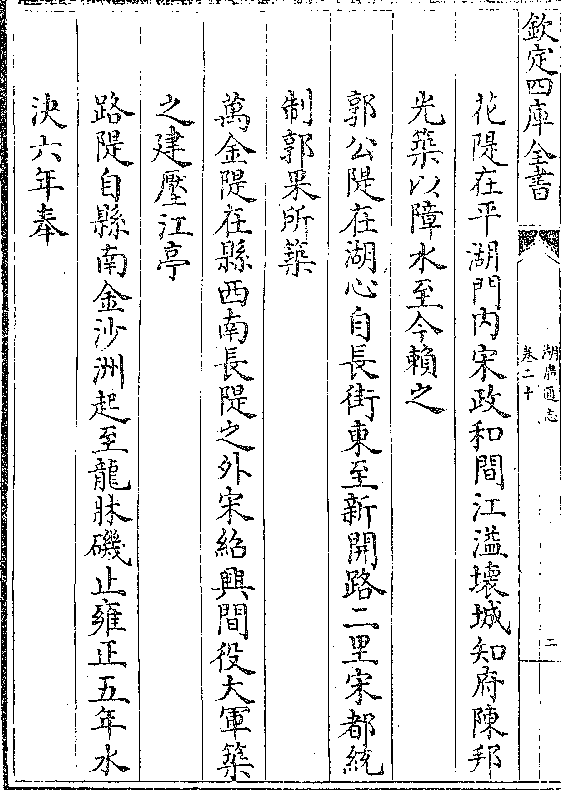 欽定四庫全書
湖廣通志
卷二十
二
花隄在平湖門内宋政和間江溢壊城知府陳邦
光築以障水至今賴之
郭公隄在湖心自長街東至新開路二里宋都統
制郭杲所築
萬金隄在縣西南長隄之外宋紹興間役大軍築
之建壓江亭
路隄自縣南金沙洲起至龍牀磯止雍正五年水
決六年奉